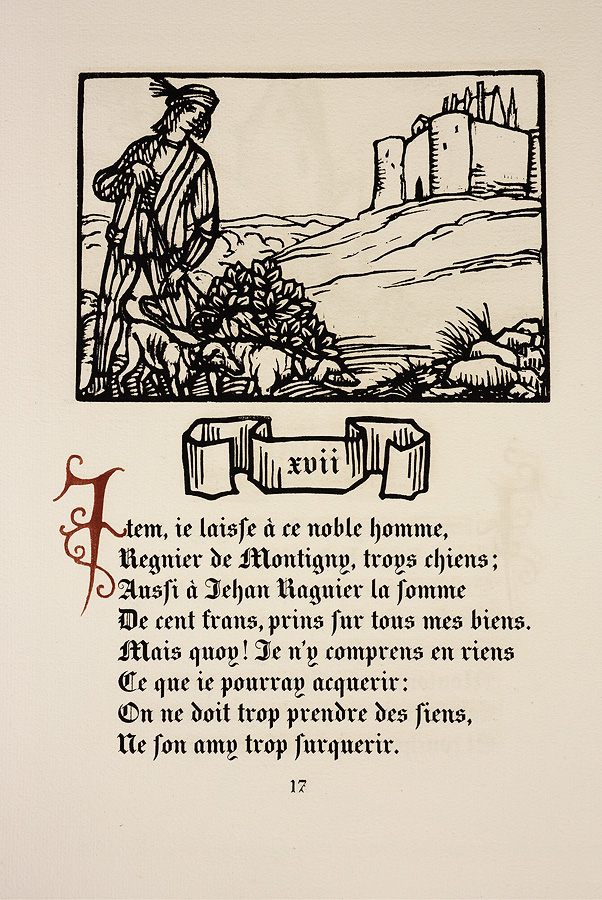 xvii
Item, ie laiſſe à ce noble homme,
Regnier de Montigny, troys chiens;
Auſſi à Jehan Raguier la ſomme
De cent frans, prins ſur tous mes biens.
Mais quoy! Je n'y comprens en riens
Ce que ie pourray acquerir:
On ne doit trop prendre des ſiens,
Ne ſon amy trop ſurquerir.
17